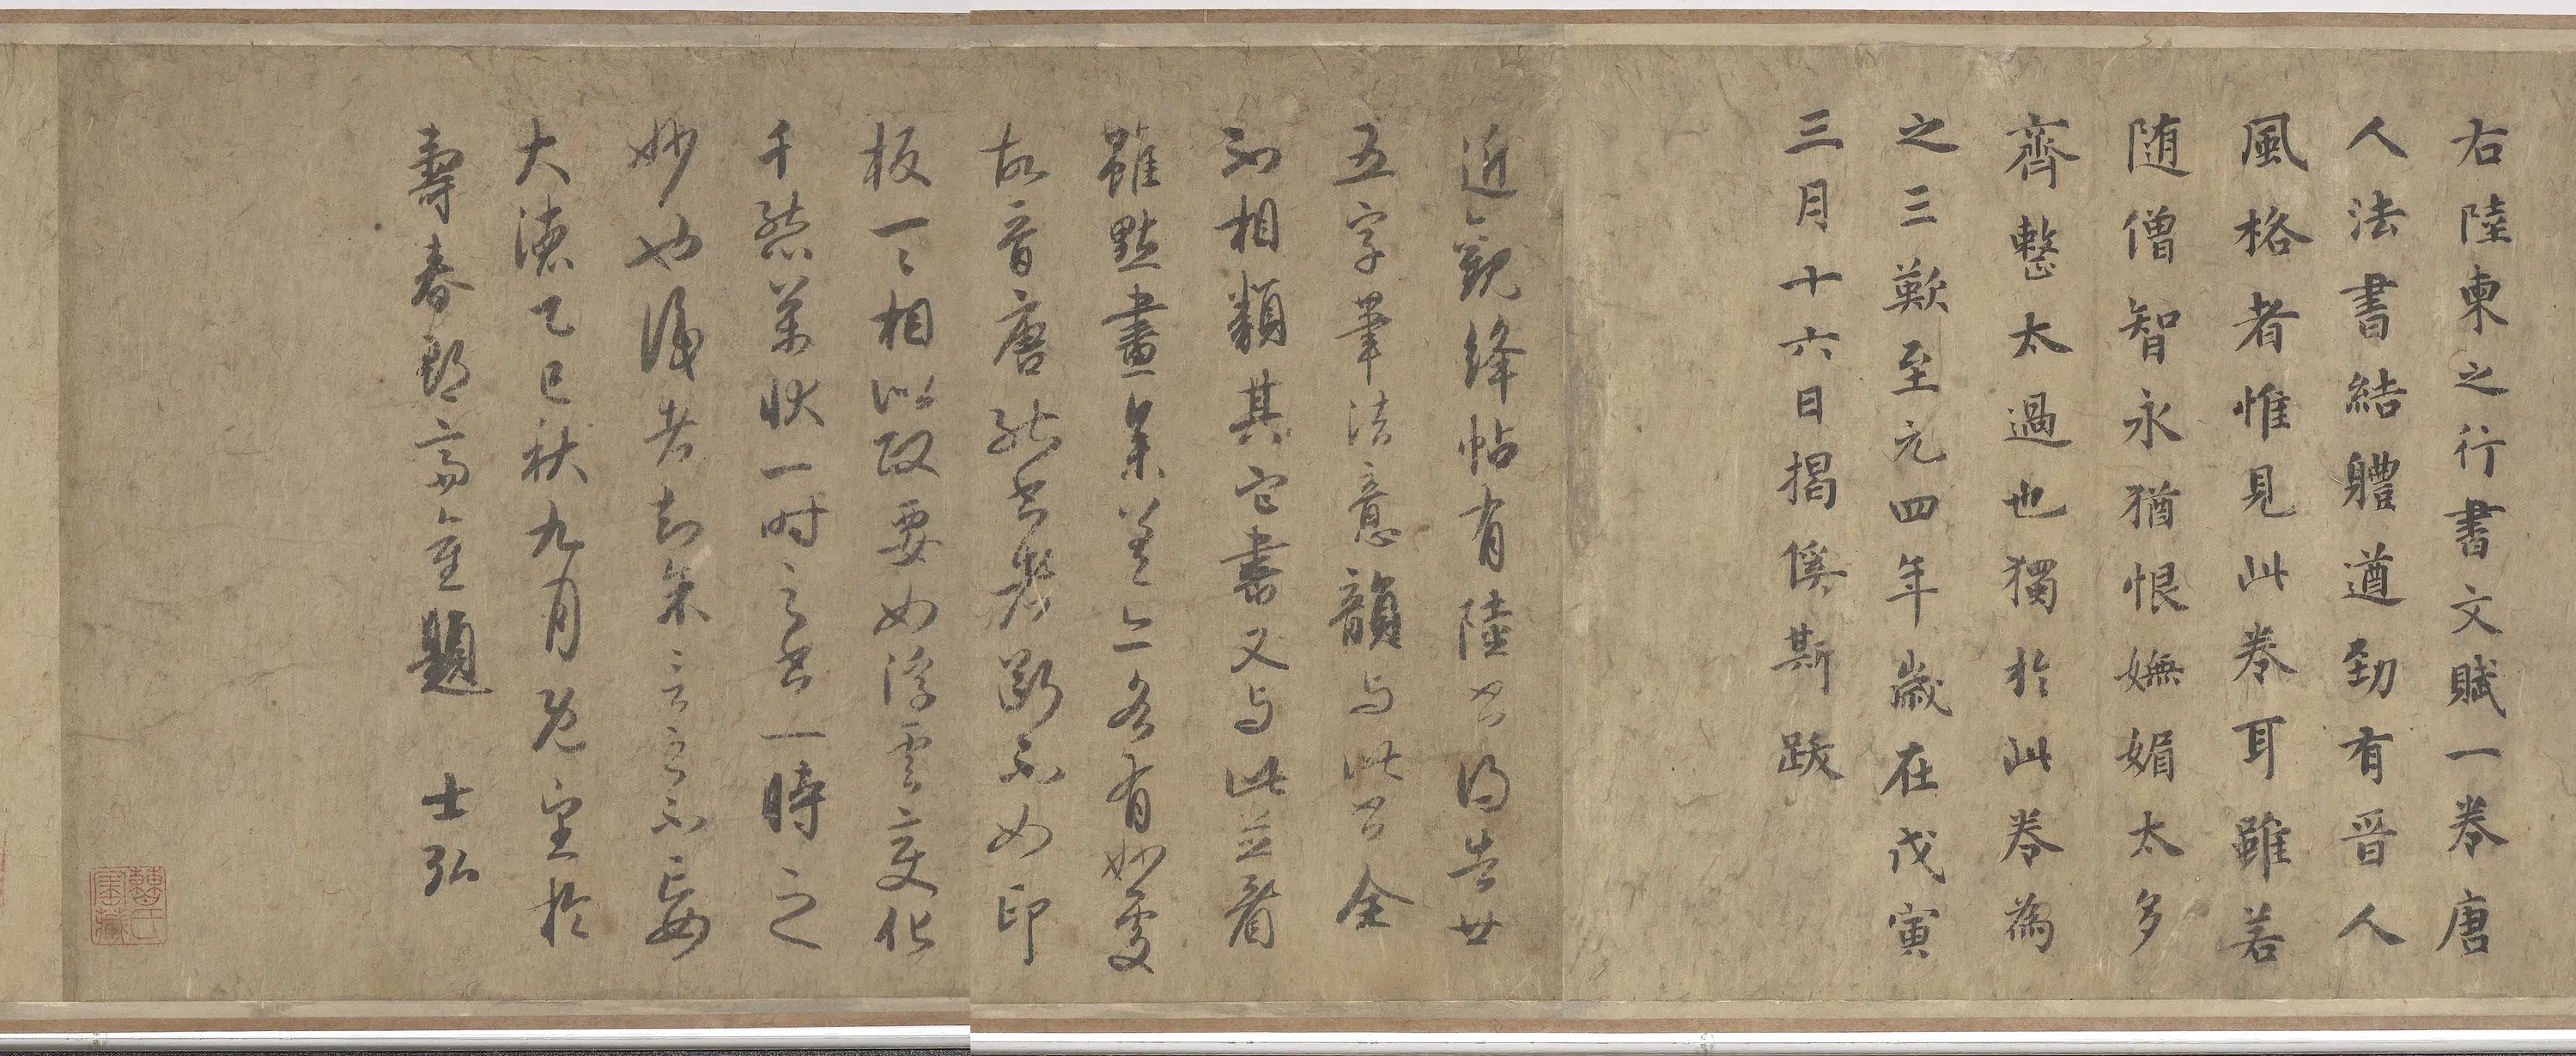 右陸柬之行書文賦一卷唐
人法書結體遒勁有晉人
風格者惟見此卷耳雖若
随僧智永猶恨嫵媚太多
齊整太過也獨於此卷為
之三歎至元四年歲在戊寅
三月十六日揭傒斯跋
近觀絳帖有陸公得告廿
五字筆法意韻与此全
到相類其它書又与此並看
雖點畫參差亦各有妙處
故昔唐能書者斷不如印
板一一相似政要如浮雲變化
千態萬狀一时之書一時之
妙也識者知余言之不妄
大德乙巳秋九月既望於
壽春郡齋重題 士弘